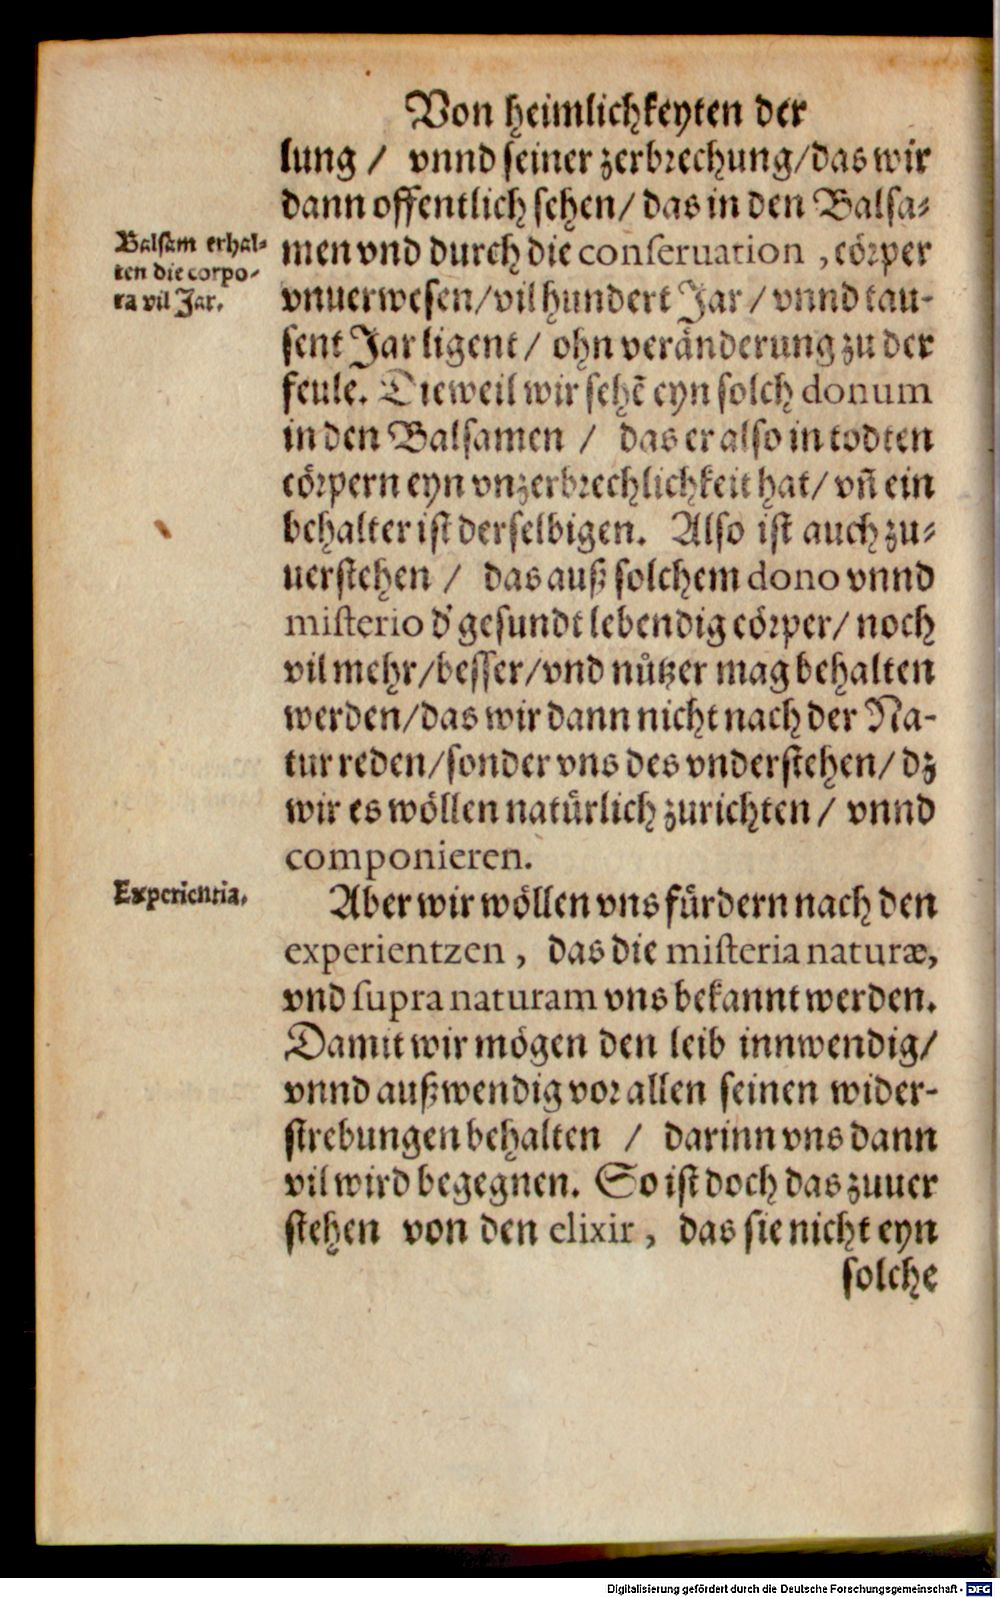 Von heimlichkeyten der
lung / vnnd seiner zerbrechung/das wir
dann offentlich sehen/ das in den Balsa⸗
Balsam erhal⸗
ten die corpo⸗
ra vil Jar.
men vnd durch die conseruation , cörper
vnuerwesen/vil hundert Jar / vnnd tau-
sent Jar ligent / ohn veränderung zu der
feule. Dieweil wir sehē eyn solch donum
in den Balsamen / das er also in todten
cörpern eyn vnzerbrechlichkeit hat/ vn̄ ein
behalter ist derselbigen. Also ist auch zu⸗
uerstehen / das auß solchem dono vnnd
misterio d' gesundt lebendig cörper/ noch
vil mehr/besser/vnd nützer mag behalten
werden/das wir dann nicht nach der Na-
tur reden/sonder vns des vnderstehen/ dz
wir es wöllen natürlich zurichten / vnnd
componieren.
Experientia.
Aber wir wöllen vns fürdern nach den
experientzen , das die misteria naturæ,
vnd supra naturam vns bekannt werden.
Damit wir mögen den leib innwendig/
vnnd außwendig vor allen seinen wider-
strebungen behalten / darinn vns dann
vil wird begegnen. So ist doch das zuuer
stehen von den elixir , das sie nicht eyn
solche
Digitalisierung gefördert durch die Deutsche Forschungsgemeinschaft - DFG